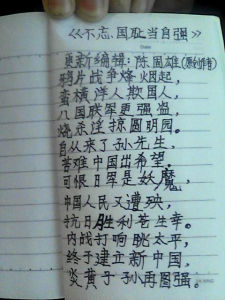 《不忘、国耻当自强》
Date
更新编辑:陈周雄(原创作者)
鸦片战争烽烟起,
蛮横洋人欺国人,
八国联军更强盗,
烧杀淫掠圆明园。
自从来了孙先生,
苦难中国出希望。
可恨日军是妖魔,
中国人民又遭殃,
抗日胜利苍生幸。
内战打响眺太平,
终于建立新中国,
炎黄子孙再图强。